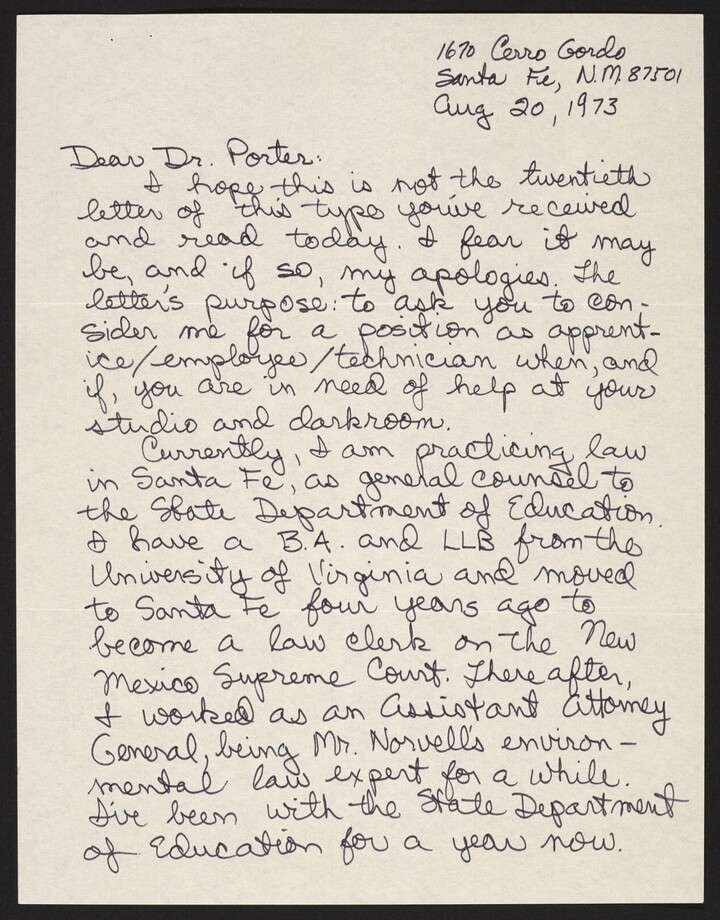 1670 Cerro Gordo
Santa Fe, N.M. 87501
Aug 20, 1973
Dear Dr. Porter:
I hope this is not the twentieth
letter of this type you've received
and read today. I fear it may
be, and if so, my apologies. The
letter's purpose: to ask you to con-
sider me for a position as apprent-
ice/employee/technician when, and
if, you are in need of help at your
studio and darkroom.
Currently, I am practicing law
in Santa Fe, as general counsel to
the State Department of Education.
I have a B.A. and LLB from the
University of Virginia and moved
to Santa Fe four years ago to
become a law clerk on the New
Mexico Supreme Court. Thereafter,
I worked as an Assistant Attorney
General, being Mr. Norvell's environ-
mental law expert for a while.
I've been with the State Department
of Education for a year now.